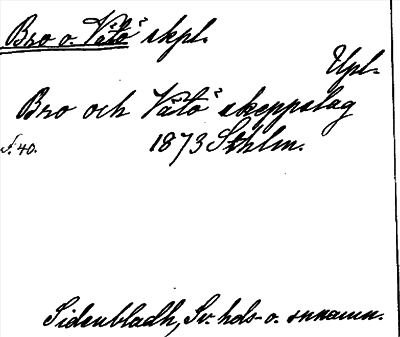 Bro o. Vätö skpl.
Upl.
Bro och Vätö skeppslag
s. 40. 1873 Sthlm.
Sidenbladh, Sv. hds- o. snnamn.